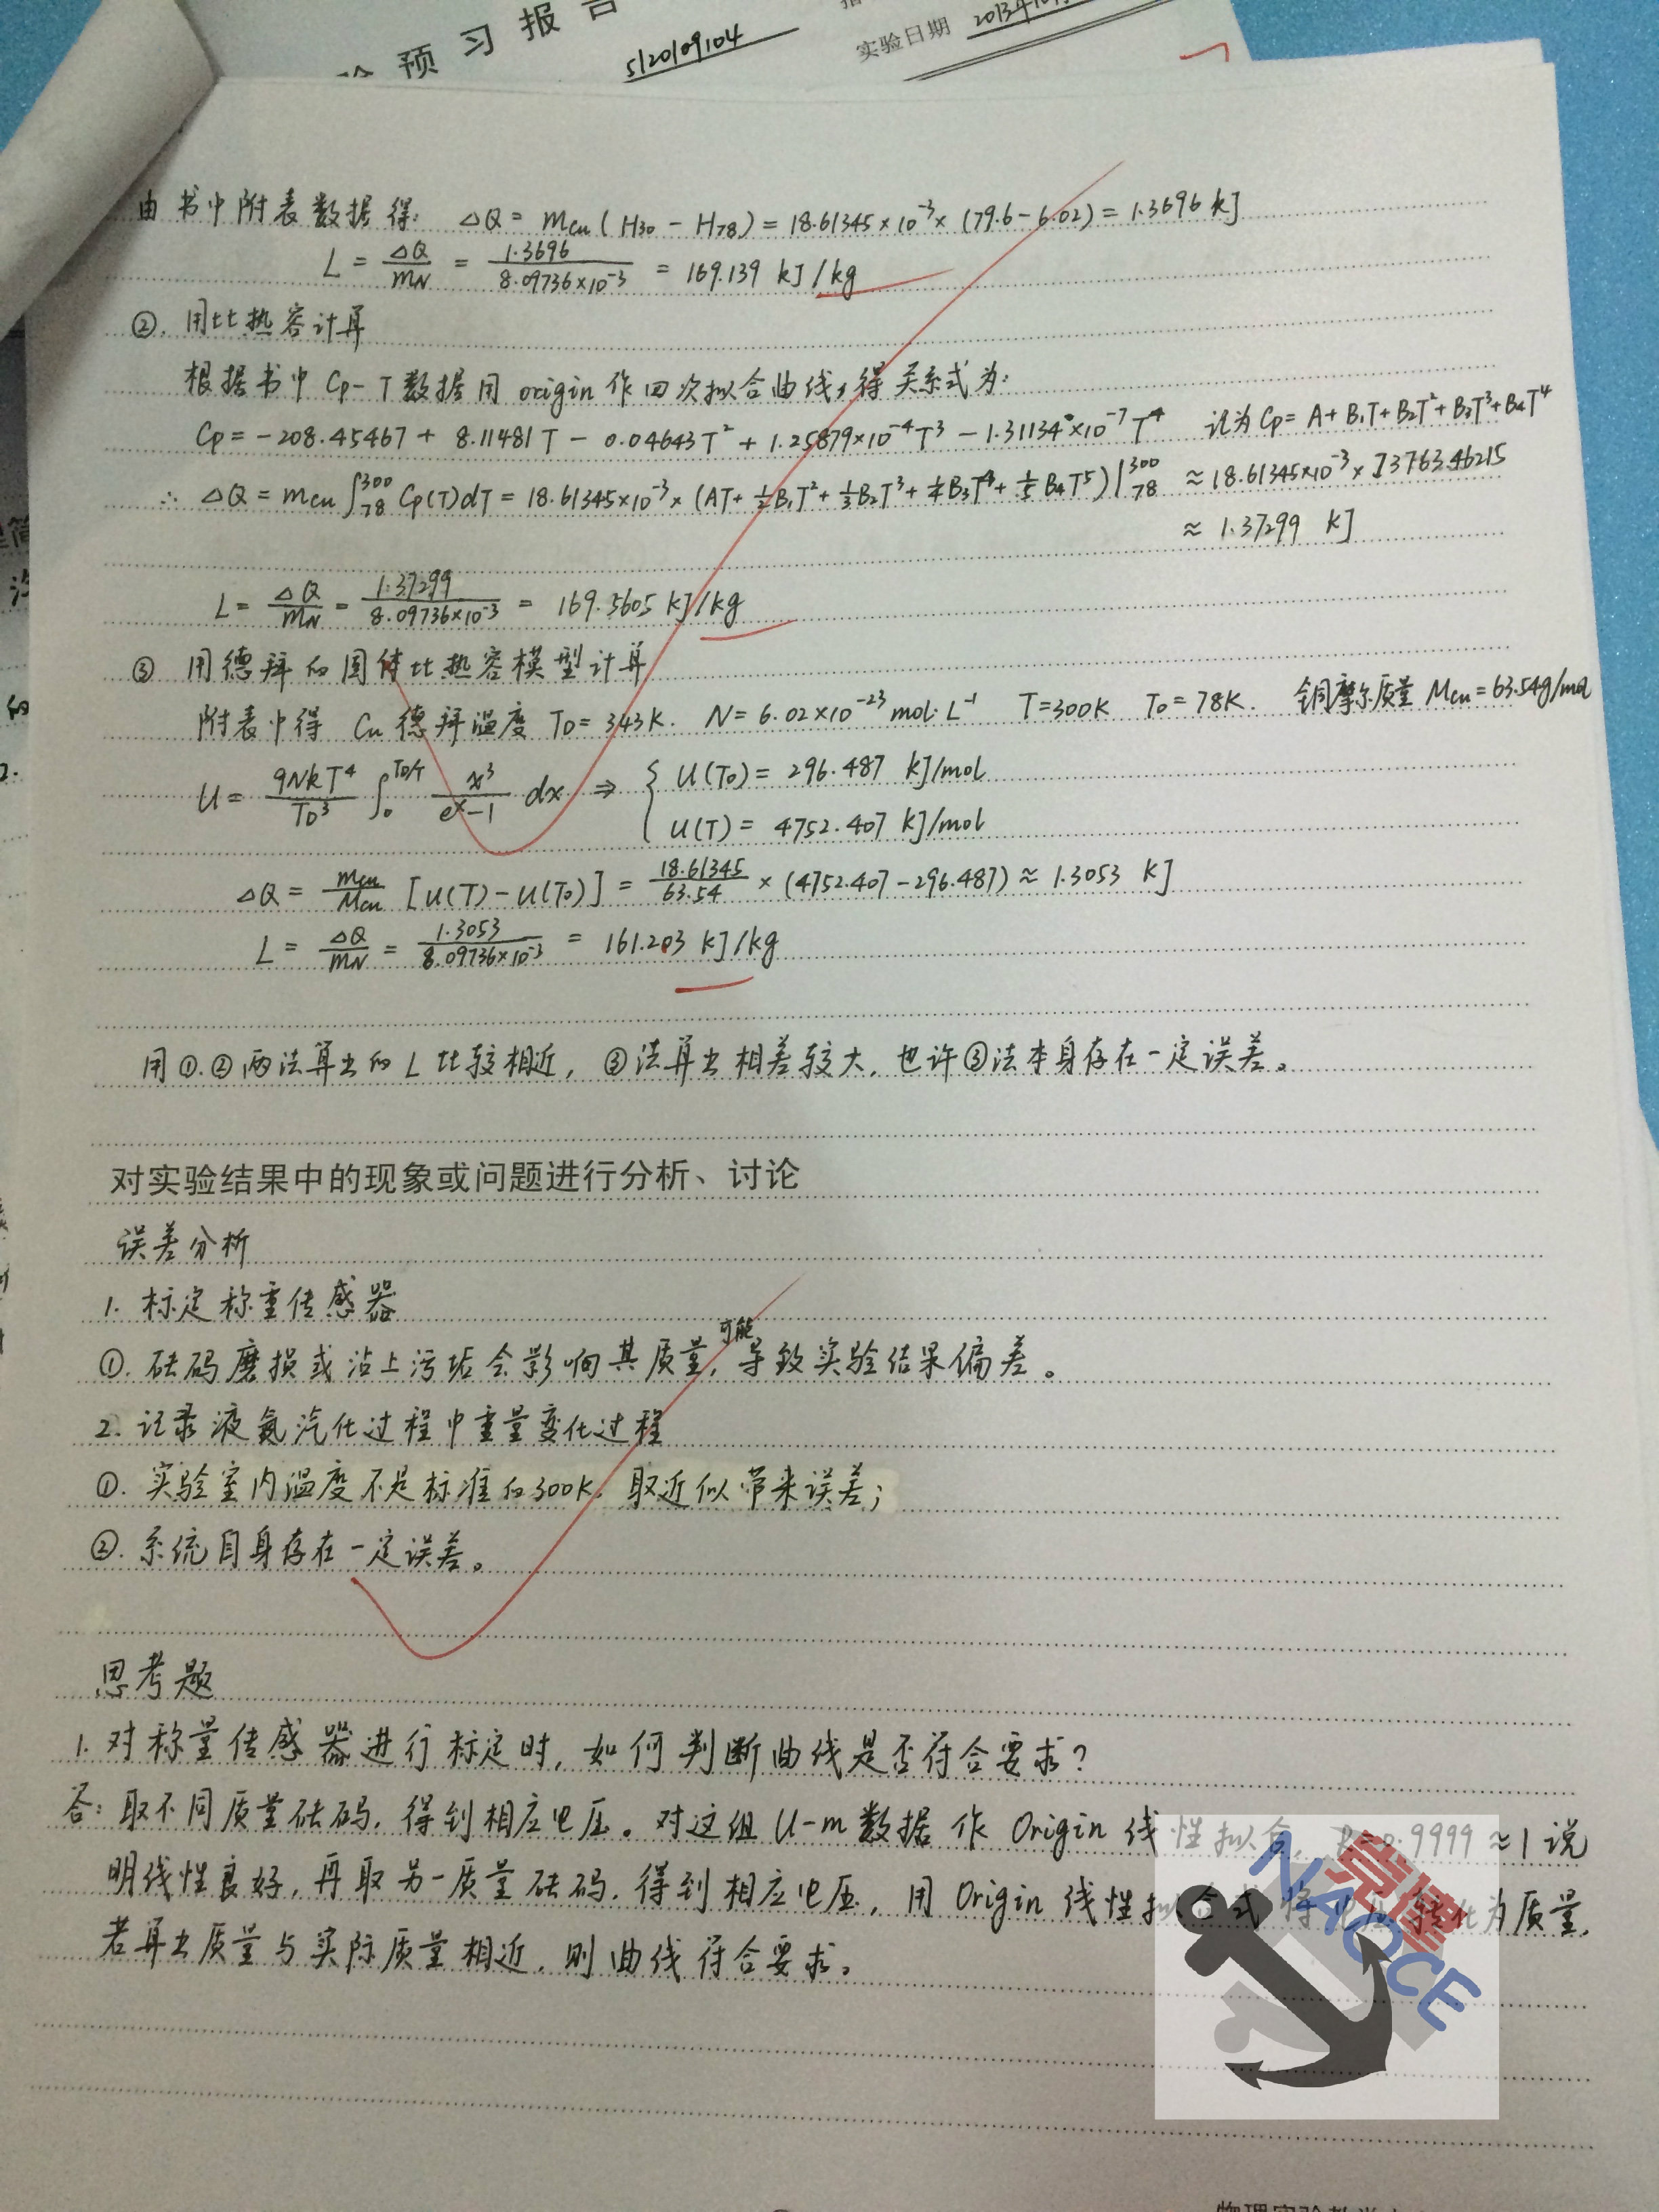 预习报告
5120109104
实验日期 2013年10
由书中附表数据得: △Q = mCu(H30 - H78) = 18.61345×10⁻³×(79.6-6.02) = 1.3696 kJ
L = △Q/mN = 1.3696/8.09736×10⁻³ = 169.139 kJ/kg
②. 用比热容计算
根据书中 Cp-T 数据用 origin 作四次拟合曲线,得关系式为:
Cp = -208.45467 + 8.11481T - 0.04643T² + 1.25879×10⁻⁴T³ - 1.31134×10⁻⁷T⁴ 记为 Cp = A + B₁T + B₂T² + B₃T³ + B₄T⁴
∴ △Q = mCu∫₇₈³⁰⁰Cp(T)dT = 18.61345×10⁻³×(AT + ½B₁T² + ⅓B₂T³ + ¼B₃T⁴ + ⅕B₄T⁵)|₇₈³⁰⁰ ≈ 18.61345×10⁻³×73763.46215
≈ 1.37299 kJ
L = △Q/mN = 1.37299/8.09736×10⁻³ = 169.5605 kJ/kg
③ 用德拜的固体比热容模型计算
附表中得 Cu 德拜温度 TD = 343K. N = 6.02×10⁻²³ mol·L⁻¹ T=300K T₀=78K. 铜摩尔质量 MCu=63.54g/mol
U = 9NkT⁴/TD³ ∫₀^(TD/T) x³/(eˣ-1) dx ⇒ { U(T₀) = 296.487 kJ/mol
U(T) = 4752.407 kJ/mol
△Q = mCu/MCu [U(T)-U(T₀)] = 18.61345/63.54 × (4752.407-296.487) ≈ 1.3053 kJ
L = △Q/mN = 1.3053/8.09736×10⁻³ = 161.203 kJ/kg
用①.②两法算出的L比较相近, ③法算出相差较大, 也许③法本身存在一定误差。
对实验结果中的现象或问题进行分析、讨论
误差分析
1. 标定称重传感器
①. 砝码磨损或沾上污垢会影响其质量,可能导致实验结果偏差。
2. 记录液氮汽化过程中重量变化过程
①. 实验室内温度不是标准的300K, 取近似带来误差;
②. 系统自身存在一定误差。
思考题
1. 对称量传感器进行标定时, 如何判断曲线是否符合要求?
答: 取不同质量砝码, 得到相应电压。对这组 U-m 数据作 Origin 线性拟合, R=0.9999≈1 说
明线性良好, 再取另一质量砝码, 得到相应电压, 用 Origin 线性拟合式将电压转化为质量,
若算出质量与实际质量相近, 则曲线符合要求。
NAOCE